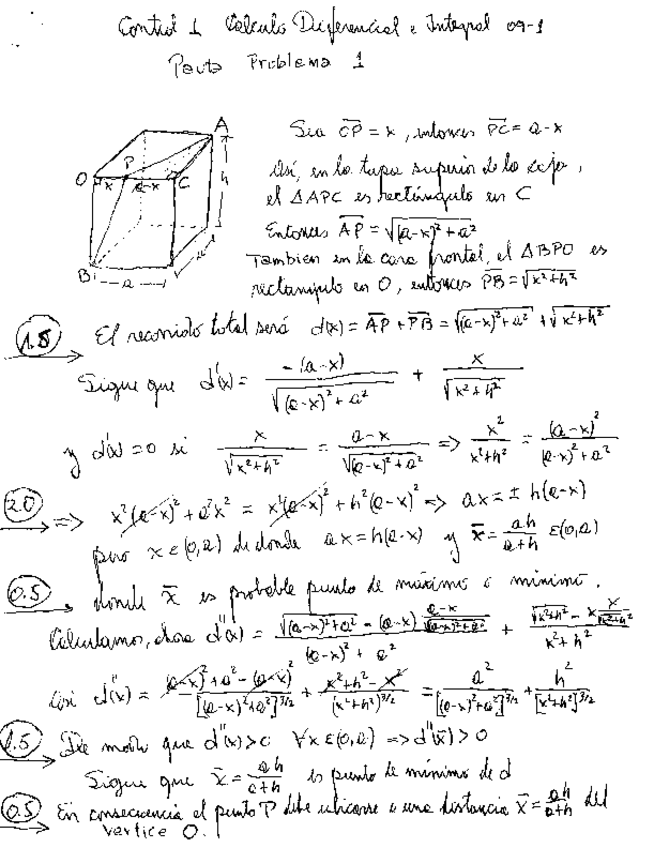 Control 1 Cálculo Diferencial e Integral 09-1
Pauta Problema 1
A
O x P a-x C h
B a a
Sea OP = x, entonces PC = a-x
Así, en la tapa superior de la caja,
el ΔAPC es rectángulo en C
Entonces AP = √((a-x)²+a²)
Tambien en la cara frontal, el ΔBPO es
rectangulo en O, entonces PB = √(x²+h²)
1.5 El recorrido total será d(x) = AP + PB = √((a-x)²+a²) + √(x²+h²)
Sigue que d'(x) = -(a-x)/√((a-x)²+a²) + x/√(x²+h²)
y d'(x) = 0 si x/√(x²+h²) = (a-x)/√((a-x)²+a²) => x²/(x²+h²) = (a-x)²/((a-x)²+a²)
2.0 => x²(a-x)² + a²x² = x²(a-x)² + h²(a-x)² => ax = ± h(a-x)
pero x ε (0,a) de donde ax = h(a-x) y x̄ = ah/(a+h) ε (0,a)
0.5 donde x̄ es probable punto de máximo o mínimo.
Calculamos, ahora d''(x) = (√((a-x)²+a²) - (a-x) (a-x)/√((a-x)²+a²))/((a-x)²+a²) + (√(x²+h²) - x x/√(x²+h²))/(x²+h²)
Así d''(x) = ((a-x)²+a²-(a-x)²)/[(a-x)²+a²]^(3/2) + (x²+h²-x²)/(x²+h²)^(3/2) = a²/[(a-x)²+a²]^(3/2) + h²/[x²+h²]^(3/2)
1.5 De modo que d''(x)>0 ∀x ε (0,a) => d''(x̄) > 0
Sigue que x̄ = ah/(a+h) es punto de mínimo de d
0.5 En consecuencia el punto P debe ubicarse a una distancia x̄ = ah/(a+h) del
vertice O.